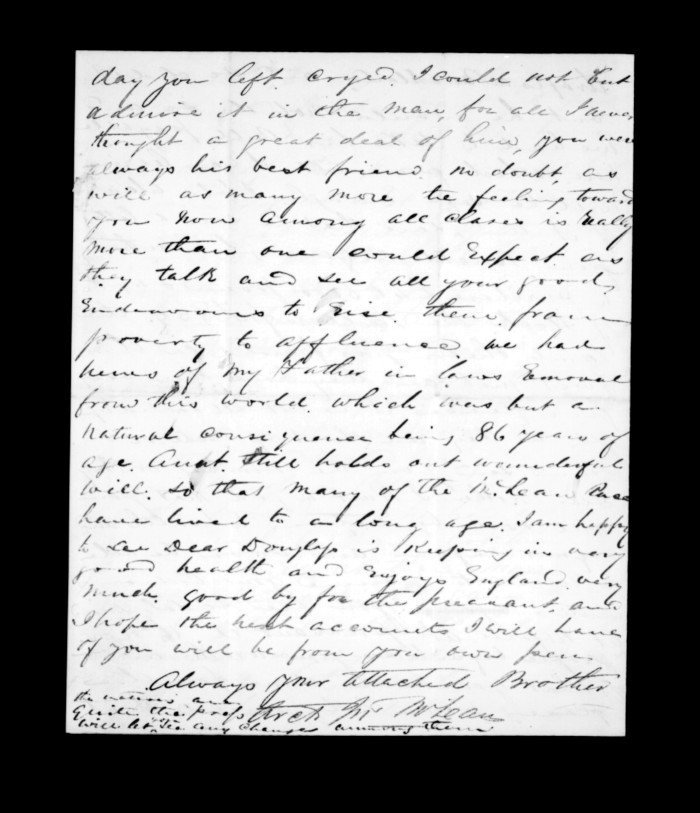 day you left. cryed. I could not but
admire it in the man, for all I never
thought a great deal of him, you were
always his best friend. no doubt, as
will as many more the feeling toward
you now among all clases is really
more than one could Expect as
they talk and see all your good
Endeavours to Rise. them. from
poverty to affluence. we had
news of my Father in laws Removal
from this world. which was but a
natural consiquence being 86 years of
age. Aunt. Still holds out wounderful
will. so that many of the McLean Race
have lived to a long age. I am happy
to see Dear Douglas is Keeping in very
good health and Enjoys England very
much. good by for the preasant, and
I hope the next accounts I will have
of you will be from your own pen
Always your attached Brother
Arch Jno McLean
the natives are
Quite the
will not see any changes among them